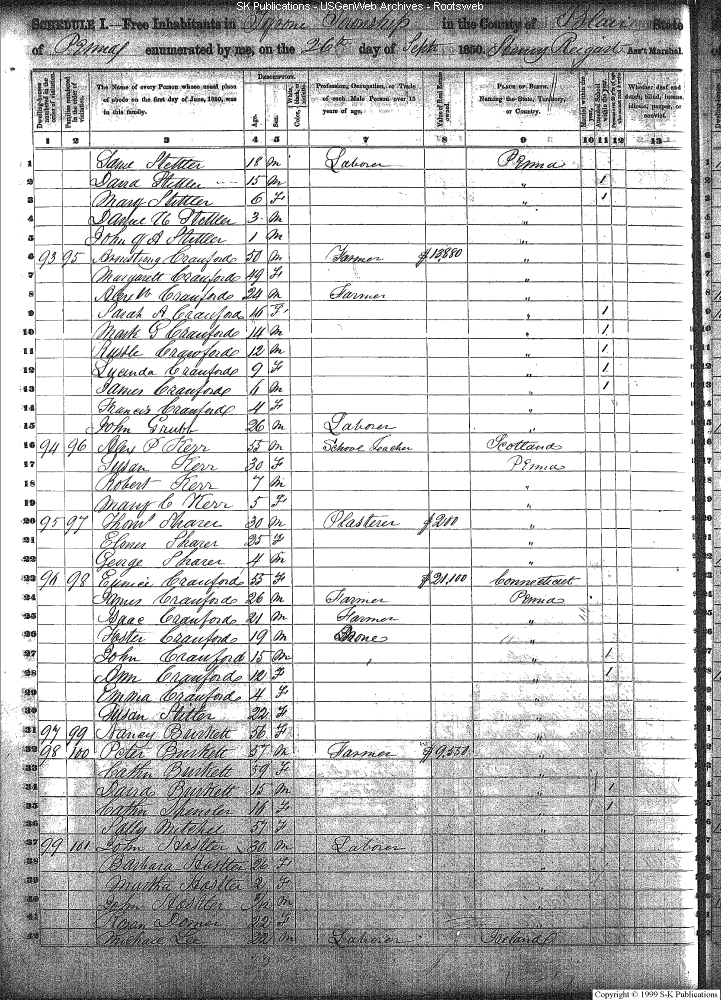 SK Publications - USGenWeb Archives - Rootsweb
SCHEDULE I.—Free Inhabitants in Tyrone Township in the County of Blair State
of Penna enumerated by me, on the 26th day of Sept 1850. Henry Ass't Marshal.
Dwelling-houses numbered in the order of visitation.
Families numbered in the order of visitation.
The Name of every Person whose usual place of abode on the first day of June, 1850, was in this family.
DESCRIPTION.
Age.
Sex.
Color,
Profession, Occupation, or Trade of each Male Person over 15 years of age.
Value of Real Estate owned.
PLACE OF BIRTH. Naming the State, Territory, or Country.
Married within the year.
Attended School within the year.
Whether deaf and dumb, blind, insane, idiotic, pauper, or convict.
1 2 3 4 5 6 7 8 9 10 11 12 13
1 Stettler 18 m Laborer Penna
2 David Stettler 15 m " 1
3 Mary Stettler 6 f " 1
4 Stettler 3 m "
5 John A Stettler 1 m "
6 93 95 Armstrong Crawford 50 m Farmer $13,880 "
7 Margarett Crawford 49 f "
8 Crawford 24 m Farmer "
9 Sarah A Crawford 16 f " 1
10 Mark G Crawford 14 m " 1
11 Crawford 12 m " 1
12 Lucinda Crawford 9 f " 1
13 James Crawford 6 m " 1
14 Francis Crawford 4 f "
15 John Grubb 26 m Laborer "
16 94 96 Alex P Kerr 55 m School Teacher Scotland
17 Susan Kerr 30 f Penna
18 Robert Kerr 7 m "
19 Mary C Kerr 5 f "
20 95 97 Thoms Sharer 30 m Plasterer $200 "
21 Sharer 25 f "
22 George Sharer 4 m "
23 96 98 Eunice Crawford 55 f $21,100 Connecticut
24 James Crawford 26 m Farmer Penna
25 Isaac Crawford 21 m Farmer "
26 Foster Crawford 19 m None "
27 John Crawford 15 m " 1
28 Ann Crawford 12 f " 1
29 Emma Crawford 4 f "
30 Susan Stitler 22 f "
31 97 99 Nancy Burkett 56 f "
32 98 100 Peter Burkett 57 m Farmer $9,550 "
33 Cathn Burkett 59 f "
34 David Burkett 15 m " 1
35 Cathn Spensler 16 f " 1
36 Sally Mitchel 57 f "
37 99 101 John Hostler 30 m Laborer "
38 Barbara Hostler 26 f "
39 Martha Hostler 2 f "
40 John Hostler m "
41 22 f "
42 Michael Lee 22 m Laborer Ireland
Copyright © 1999 S-K Publications